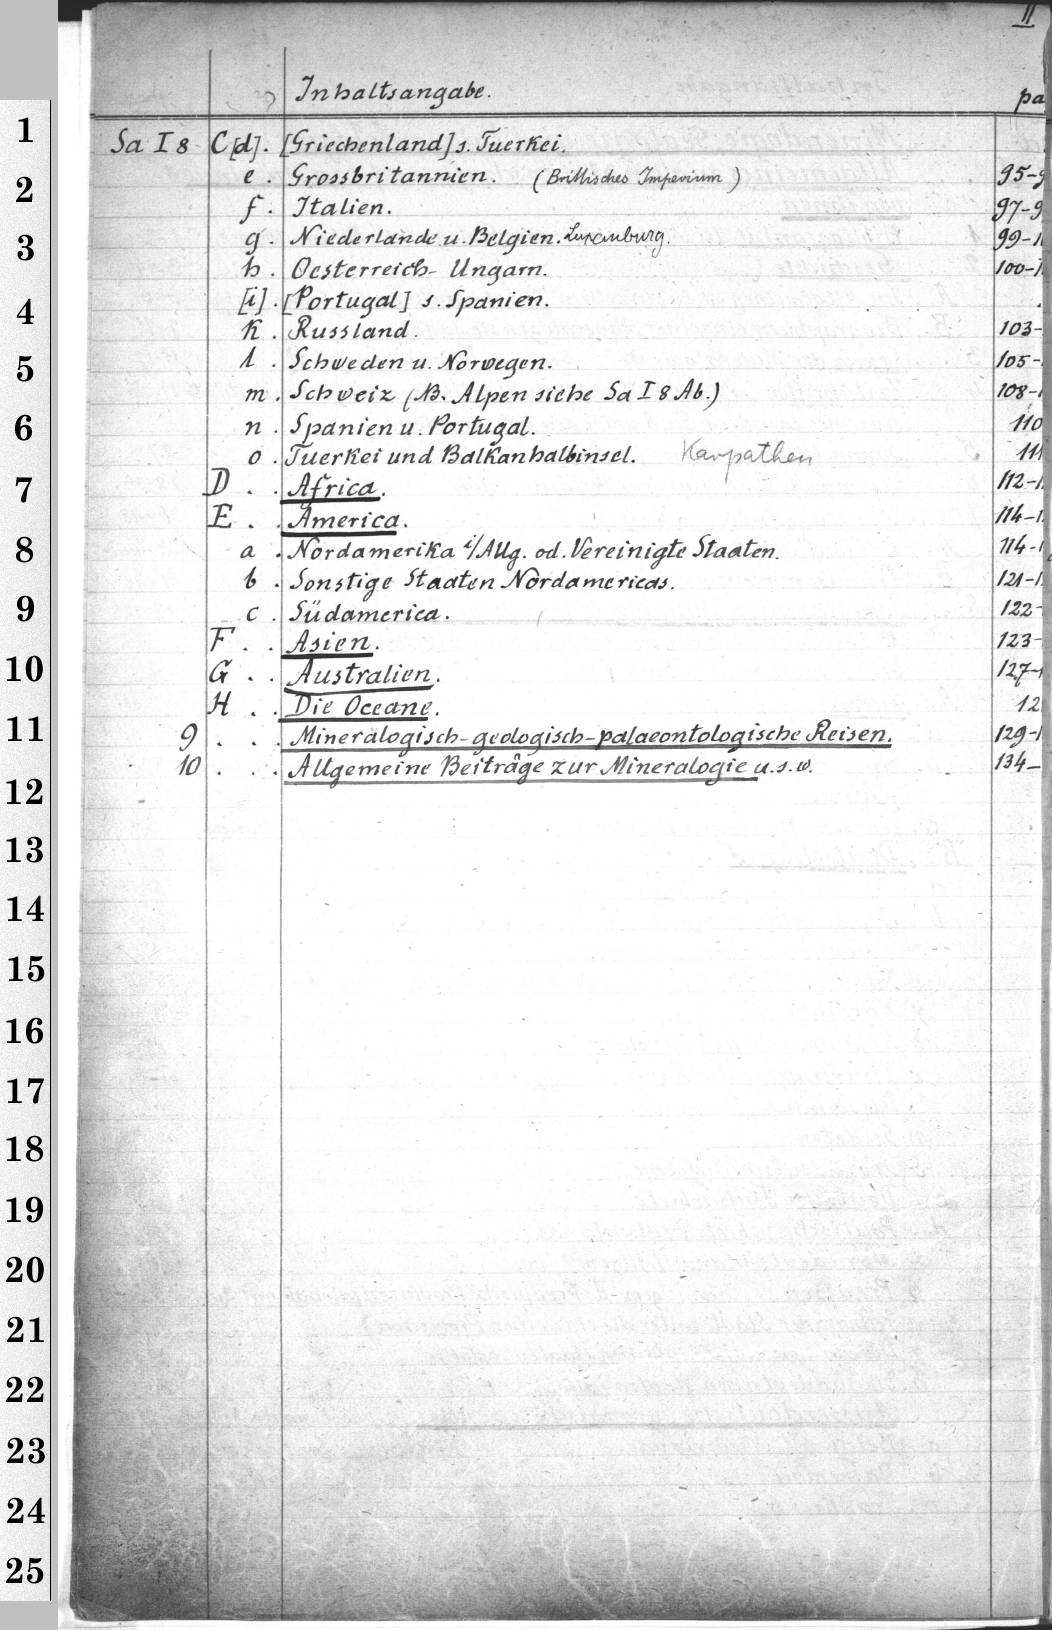 II
Inhaltsangabe. pa
Sa I 8 C [d]. [Griechenland] s. Tuerkei.
e . Grossbritannien. (Brittisches Imperium) 95-9
f . Italien. 97-9
g . Niederlande u. Belgien. Luxemburg. 99-1
h . Oesterreich- Ungarn. 100-1
[i] . [Portugal] s. Spanien.
k . Russland. 103-
l . Schweden u. Norwegen. 105-
m . Schweiz (NB. Alpen siehe Sa I 8 Ab.) 108-1
n . Spanien u. Portugal. 110
o . Tuerkei und Balkanhalbinsel. Karpathen 111
D . . Africa. 112-1
E . . America. 114-1
a . Nordamerika i/Allg. od. Vereinigte Staaten. 114-1
b . Sonstige Staaten Nordamericas. 121-1
c . Südamerica. 122-
F . . Asien. 123-
G . . Australien. 127-1
H . . Die Oceane. 12
9 . . . Mineralogisch-geologisch-palaeontologische Reisen. 129-1
10 . . . Allgemeine Beiträge zur Mineralogie u.s.w. 134-
1
2
3
4
5
6
7
8
9
10
11
12
13
14
15
16
17
18
19
20
21
22
23
24
25